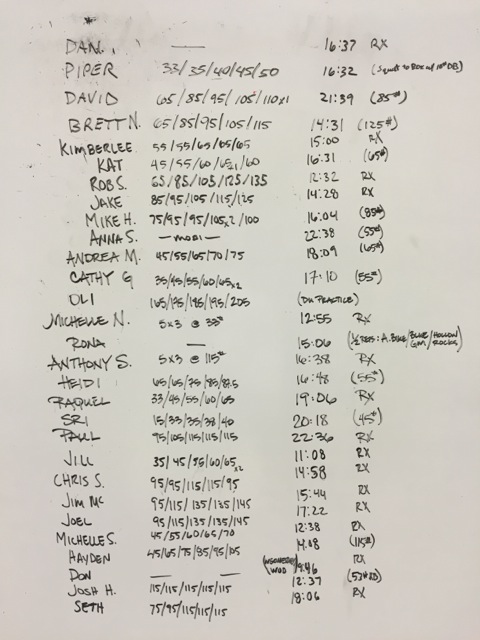 *
DAN. — 16:37 RX
PIPER 33/35/40/45/50 16:32 (Squat to Box w/ 10# DB)
DAVID 65/85/95/105/110x1 21:39 (85#)
BRETT N. 65/85/95/105/115 14:31 (125#)
KIMBERLEE 55/55/65/65/65 15:00 RX
KAT 45/55/60/65x1/60 16:31 (65#)
ROB S. 65/85/105/125/135 12:32 RX
JAKE 85/95/105/115/125 14:28 RX
MIKE H. 75/95/95/105x2/100 16:04 (85#)
ANNA S. —MOBI— 22:38 (55#)
ANDREA M. 45/55/65/70/75 18:09 (65#)
CATHY G 35/45/55/60/65x2 17:10 (55#)
OLI 165/175/185/195/205 (DU PRACTICE)
MICHELLE N. 5x3 @ 35# 12:55 RX
RONA — 15:06 (1/2 REPS: A.BIKE/BLUE GM/HOLLOW ROCKS)
ANTHONY S. 5x3 @ 115# 16:38 RX
HEIDI 65/65/75/85/87.5 16:48 (55#)
RAQUEL 33/45/55/60/65 19:06 RX
SRI 15/33/35/38/40 20:18 (45#)
PAUL 95/105/115/115/115 22:36 RX
JILL 35/45/55/60/65x2 11:08 RX
CHRIS S. 95/95/115/115/95 14:58 RX
JIM MC 95/115/135/135/145 15:44 RX
JOEL 95/115/135/135/145 17:22 RX
MICHELLE S. 45/55/60/65/70 12:38 RX
HAYDEN 45/65/75/85/95/105 14:08 (115#)
DON — WOD 9:46 RX
JOSH H. 115/115/115/115/115 12:37
SETH 75/95/115/115/115 18:06 RX